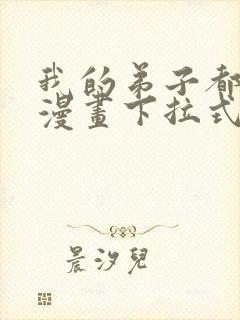 我的弟子都
漫畫下拉式
晨汐兒